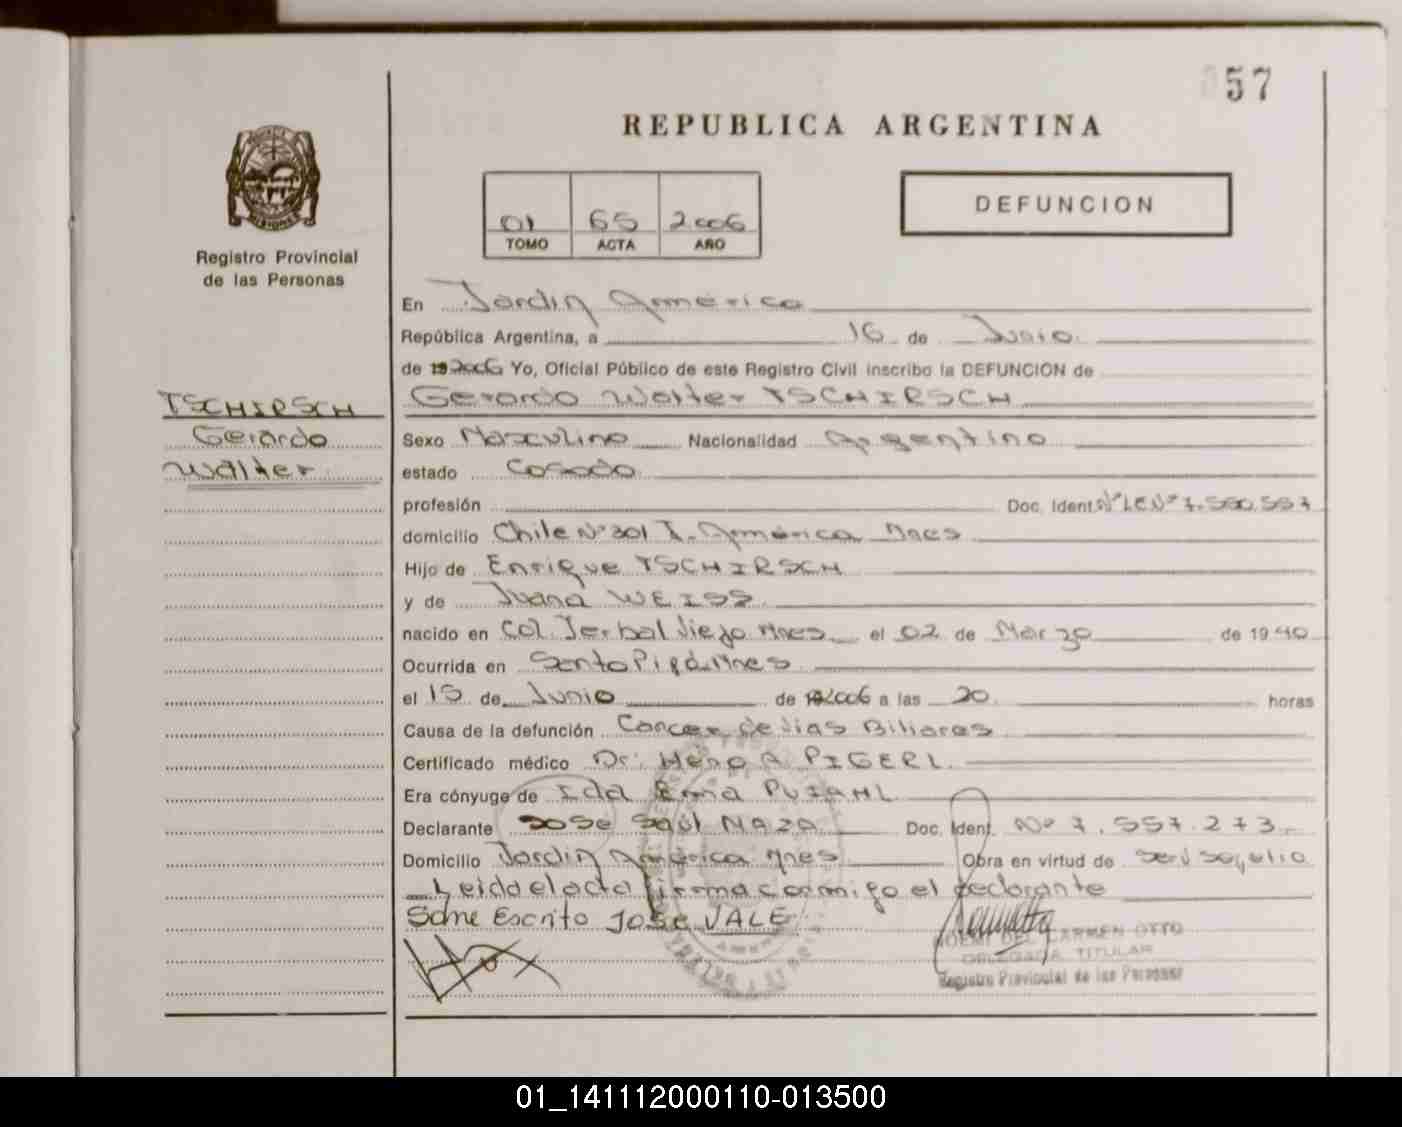 57
REPUBLICA ARGENTINA
01 65 2006
TOMO ACTA AÑO
DEFUNCION
Registro Provincial
de las Personas
TSCHIRSCH
Gerardo
Walter
En Jardin América
República Argentina, a 16 de Junio
de 2006 Yo, Oficial Público de este Registro Civil inscribo la DEFUNCION de
Gerardo Walter TSCHIRSCH
Sexo Masculino Nacionalidad Argentino
estado Casado
profesión Doc. Ident. Nº LE Nº 7.550.557
domicilio Chile Nº 301 J. América Mnes
Hijo de Enrique TSCHIRSCH
y de Juana WEISS
nacido en Col. Yerbal Viejo Mnes el 02 de Marzo de 1940
Ocurrida en Santo Pipó Mnes
el 15 de Junio de 2006 a las 20 horas
Causa de la defunción Cancer de Vias Biliares
Certificado médico Dr: A. PIGERL
Era cónyuge de Ida Erna
Declarante José Saúl MAZA Doc. Ident. Nº 7.557.273
Domicilio Jardin América Mnes Obra en virtud de Serv Sepelio
Leida el acta firma conmigo el declarante
Sobre Escrito José VALE
NOEMI DEL CARMEN OTTO
DELEGADA TITULAR
Registro Provincial de las Personas
01_141112000110-013500